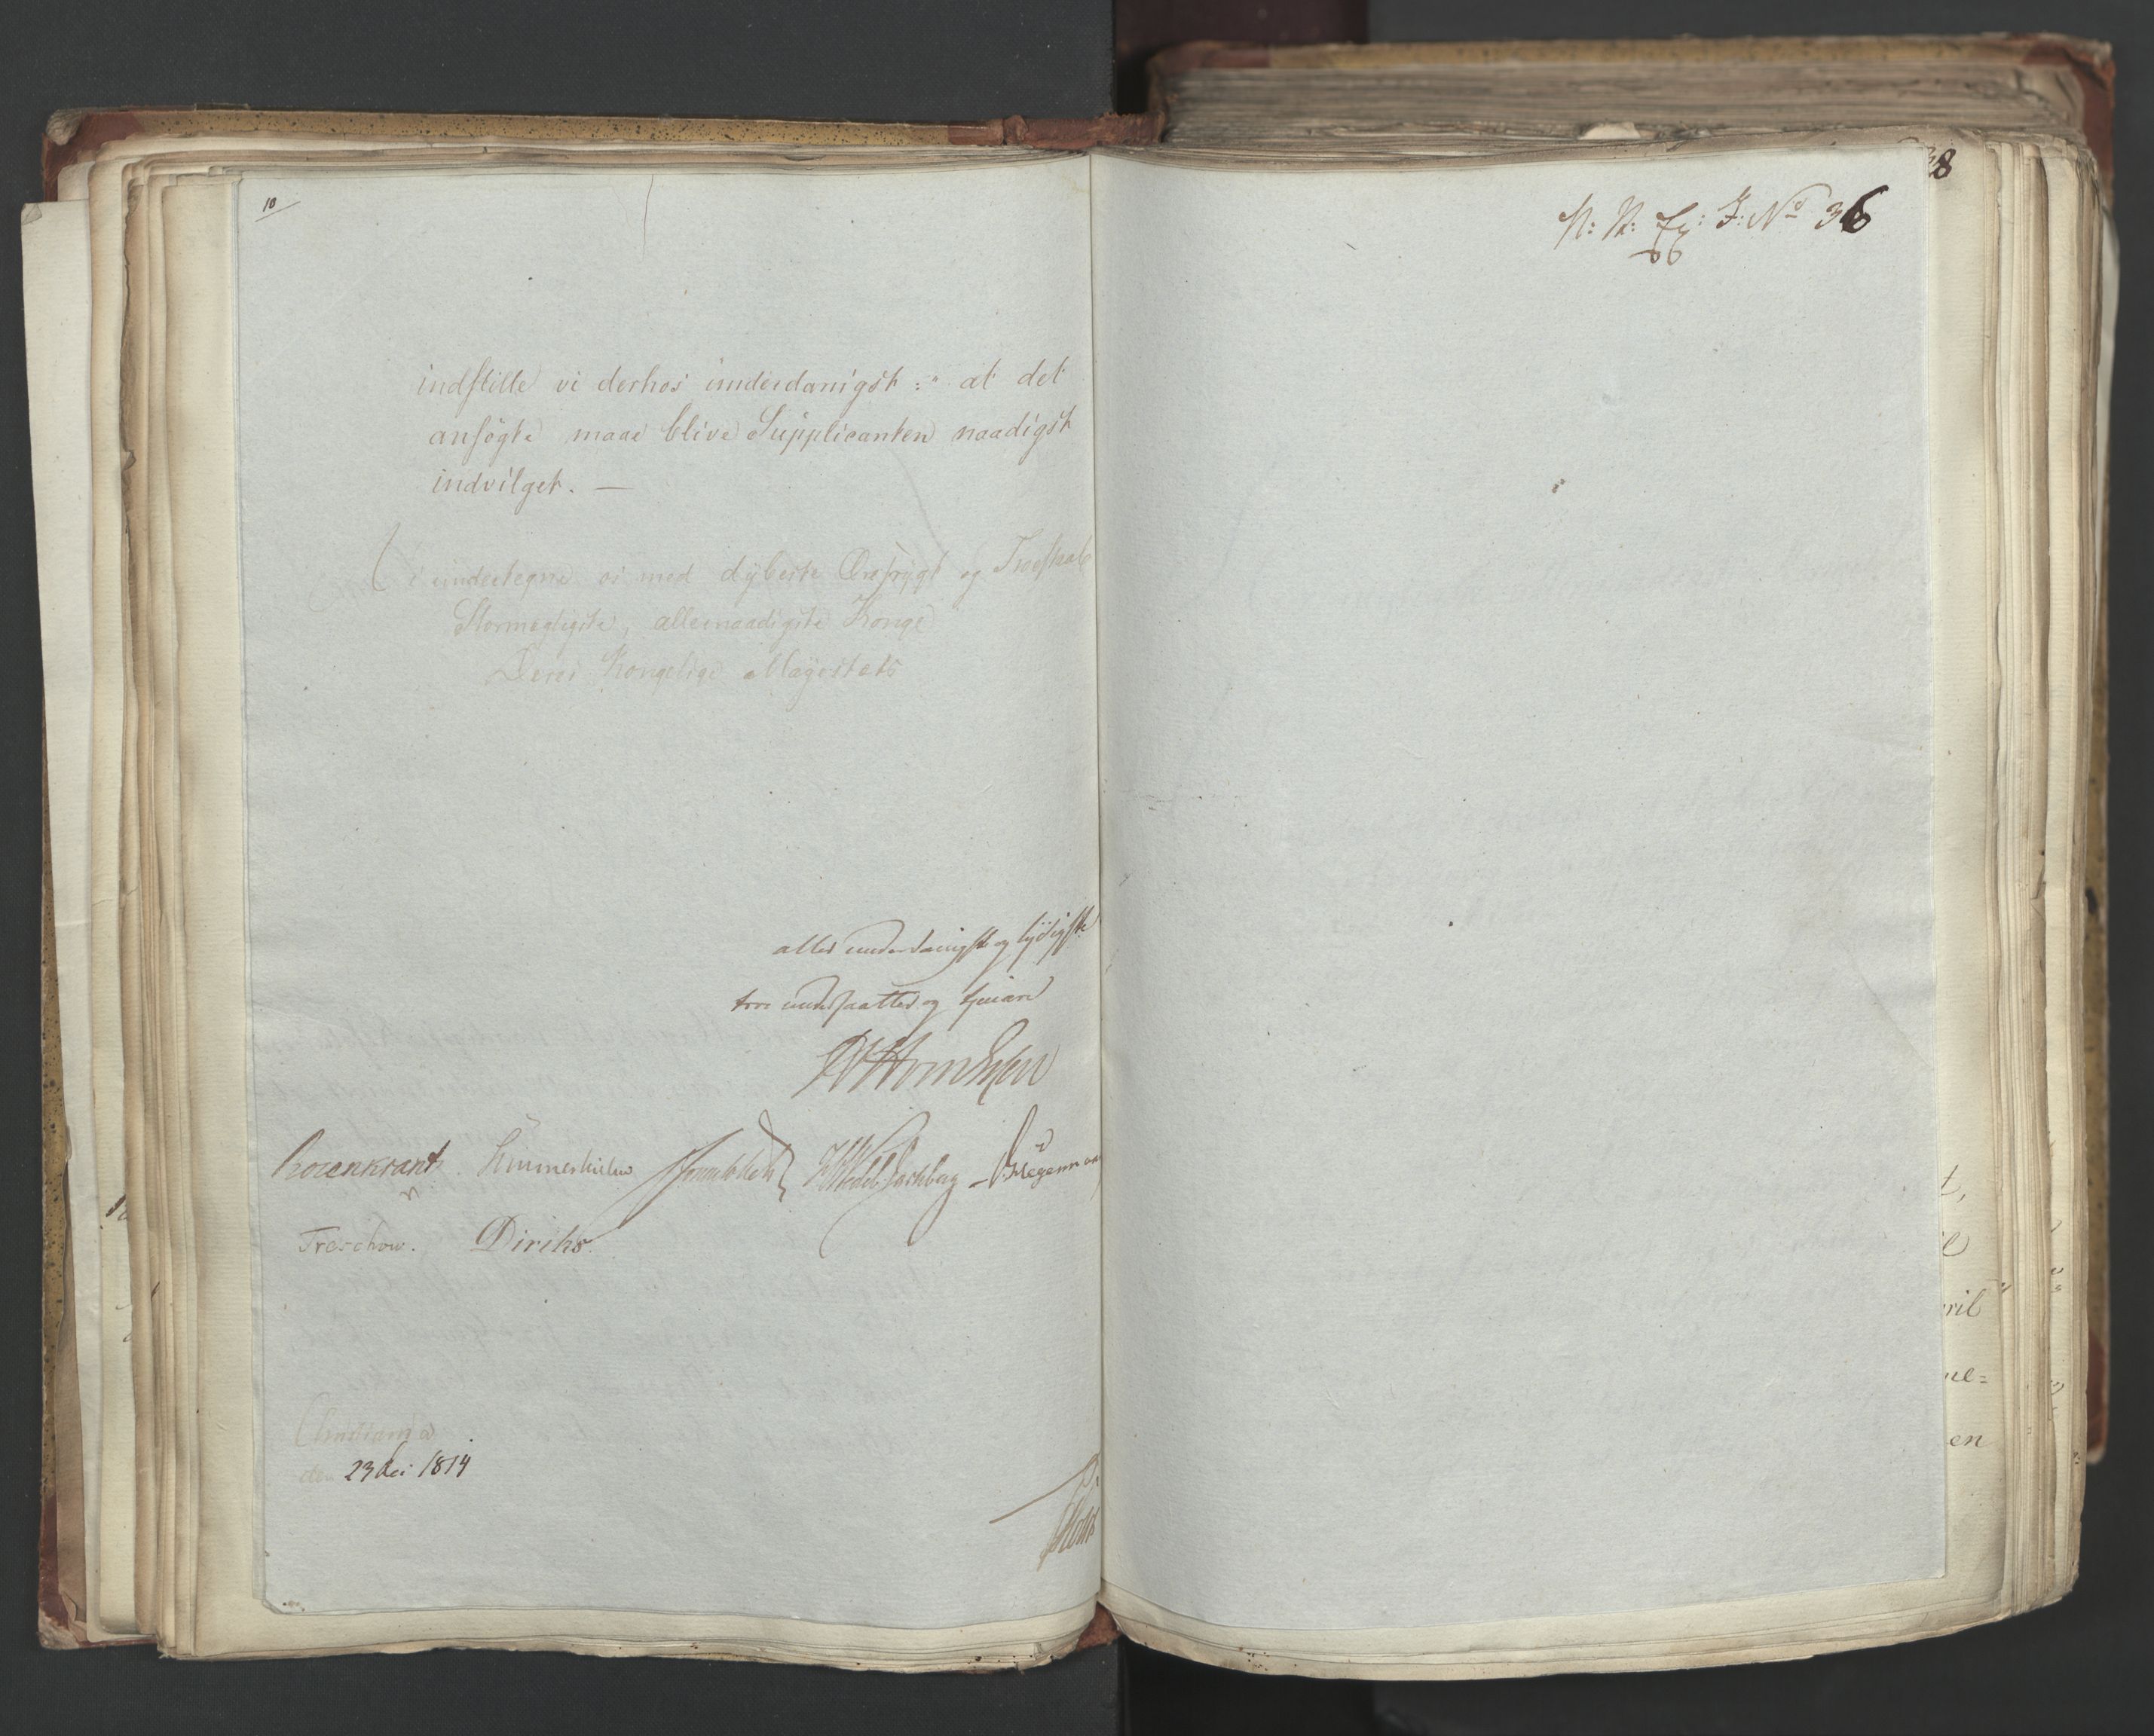 10
indstille vi derhos underdanigst: "at det
ansögte maae blive Supplicanten naadigst
indvilget. —
Vi undertegne os med dybeste Ærefrygt og Troeskab
Stormægtigste, allernaadigste Konge
Deres Kongelige Mayestæts
aller underdanigst og lydigste
troe undersaatter og tjenere
M Sommerhielm
Rosenkrantz Hegermann
Treschow. Diriks.
Christiania
den 23 dec 1814
38
N: R: Ex: J: No 36
t,
ril
ne=
en